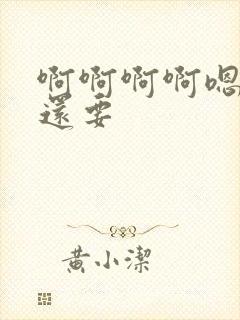 啊啊啊啊嗯
還要
黄小潔